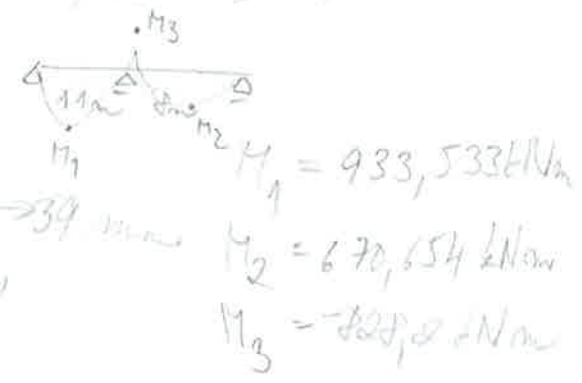 M3
11m 8m
M1 M2
M1 = 933,533 kNm
→39 mm
M2 = 670,654 kNm
M3 = -828,2 kNm